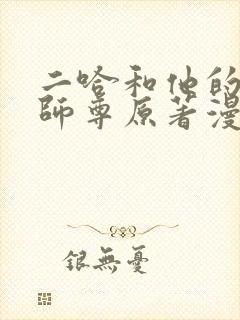 二哈和他的
師尊原著漫
銀無憂